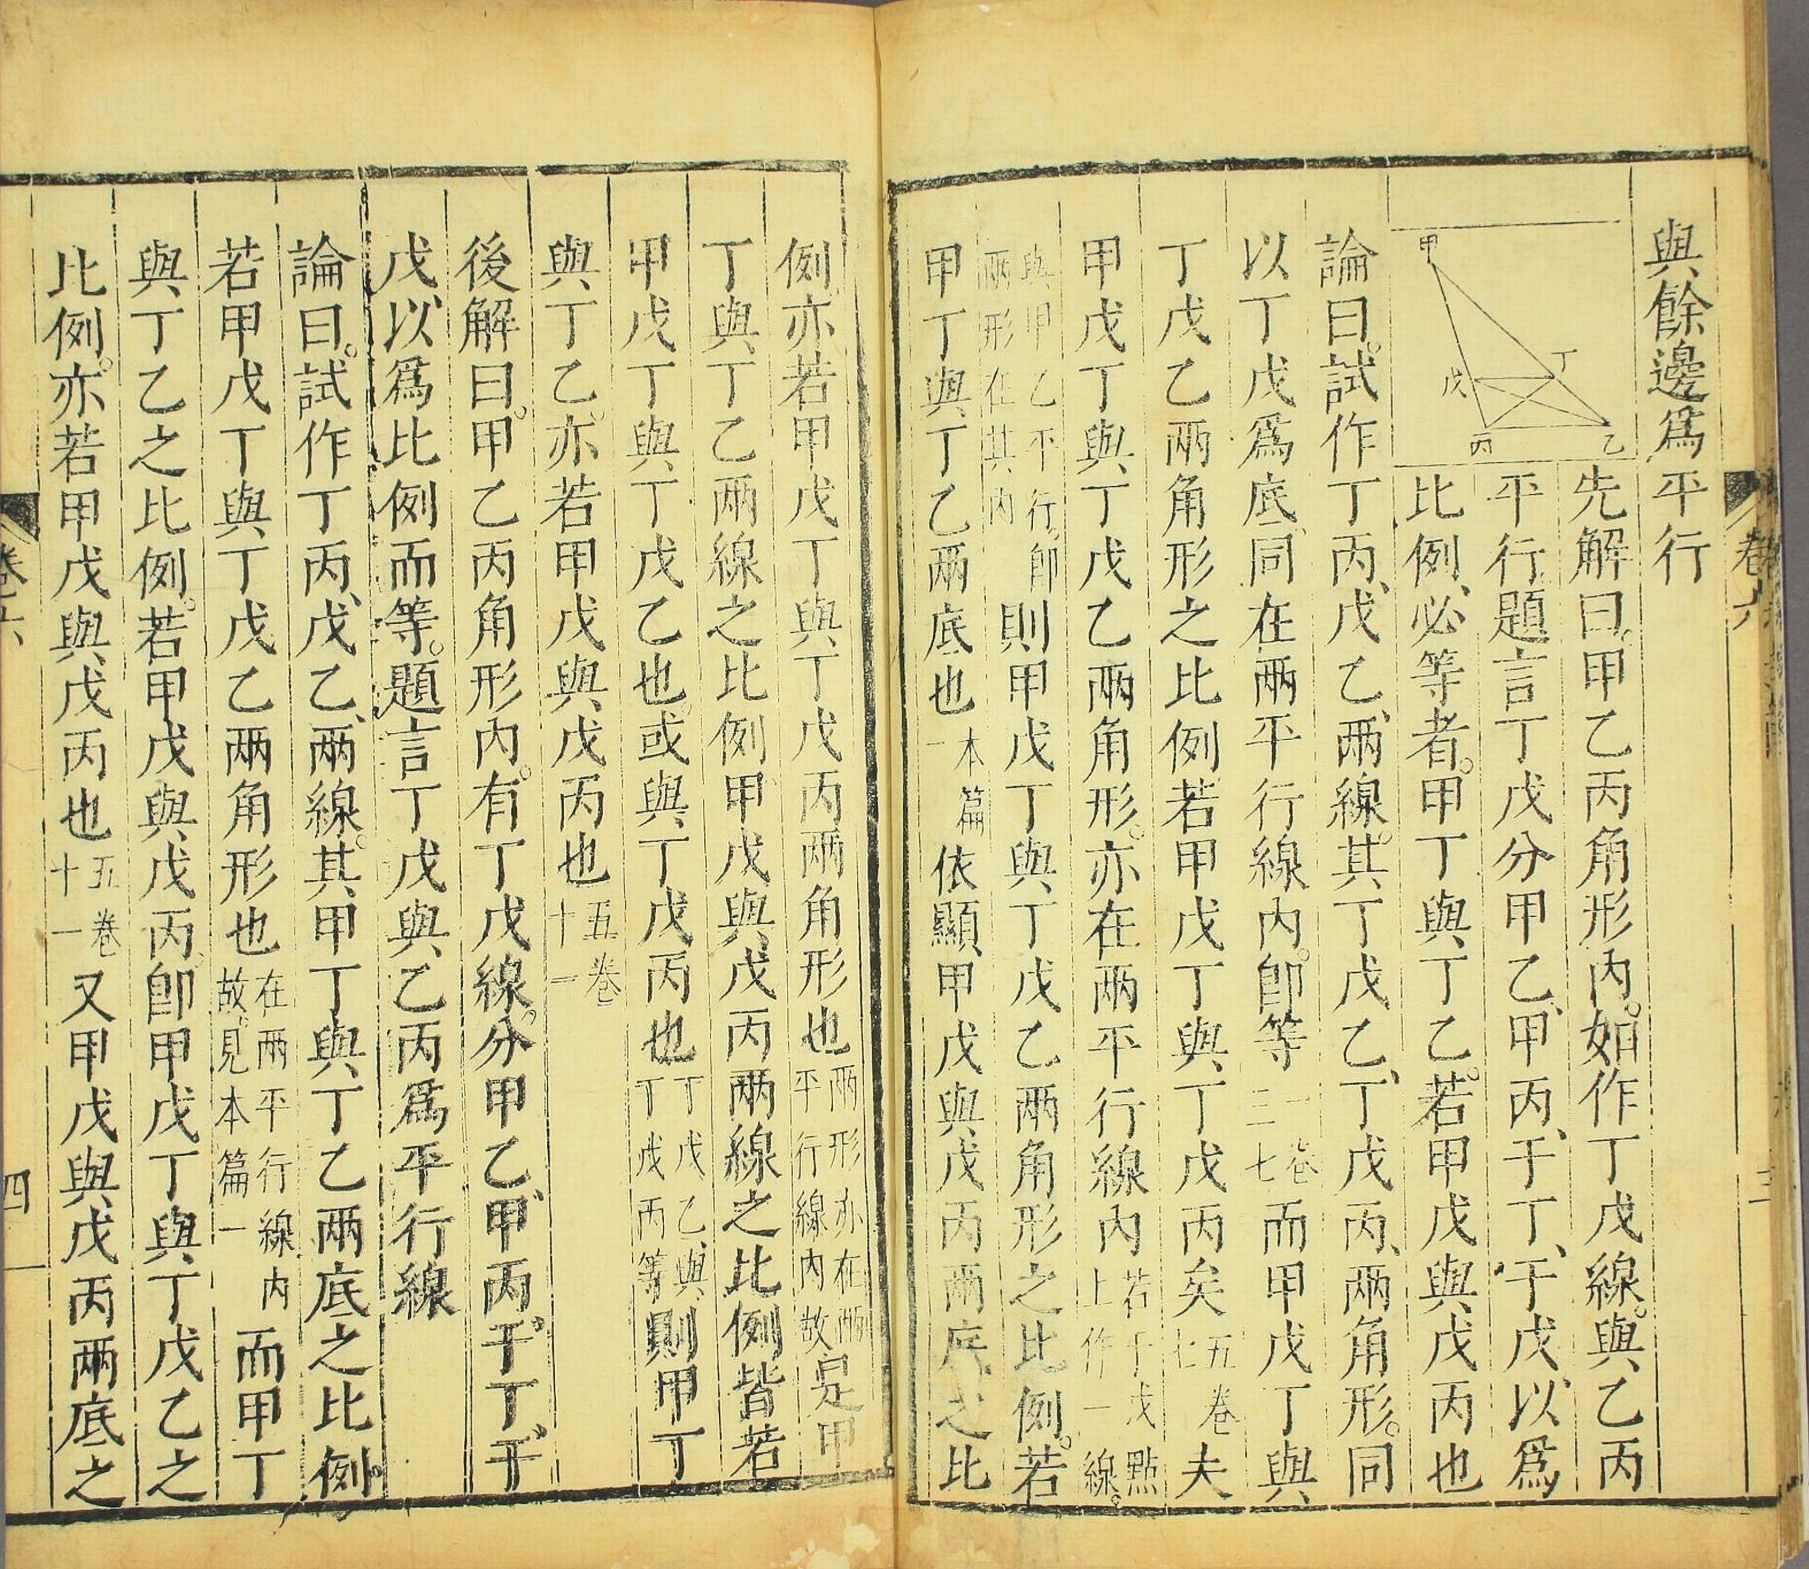 與餘邊爲平行
甲
丁
戊
丙
乙
先解曰。甲乙丙角形内。如作丁戊線。與乙丙
平行題言丁戊分甲乙、甲丙、于丁、于戊、以爲
比例、必等者。甲丁與丁乙。若甲戊與戊丙也
論曰。試作丁丙、戊乙、兩線。其丁戊乙、丁戊丙、兩角形。同
以丁戊爲底、同在兩平行線内。卽等一卷三七而甲戊丁與
丁戊乙兩角形之比例若甲戊丁與丁戊丙矣五卷七夫
甲戊丁與丁戊乙兩角形。亦在兩平行線内若于戊點上作一線。
與甲乙平行。卽兩形在其内則甲戊丁與丁戊乙兩角形之比例。若
甲丁與丁乙兩底也本篇一依顯甲戊與戊丙兩底之比
卷六
三
例亦若甲戊丁與丁戊丙兩角形也兩形亦在兩平行線内故是甲
丁與丁乙兩線之比例甲戊與戊丙兩線之比例皆若
甲戊丁與丁戊乙也。或與丁戊丙也丁戊乙、與丁戊丙等則甲丁
與丁乙。亦若甲戊與戊丙也五卷十一
後解曰。甲乙丙角形内。有丁戊線。分甲乙、甲丙。于丁、于
戊、以爲比例而等。題言丁戊與乙丙爲平行線
論曰。試作丁丙、戊乙、兩線。其甲丁與丁乙兩底之比例。
若甲戊丁與丁戊乙兩角形也在兩平行線内故。見本篇一而甲丁
與丁乙之比例。若甲戊與戊丙、卽甲戊丁與丁戊乙之
比例。亦若甲戊與戊丙也五卷十一又甲戊與戊丙兩底之
卷六
四